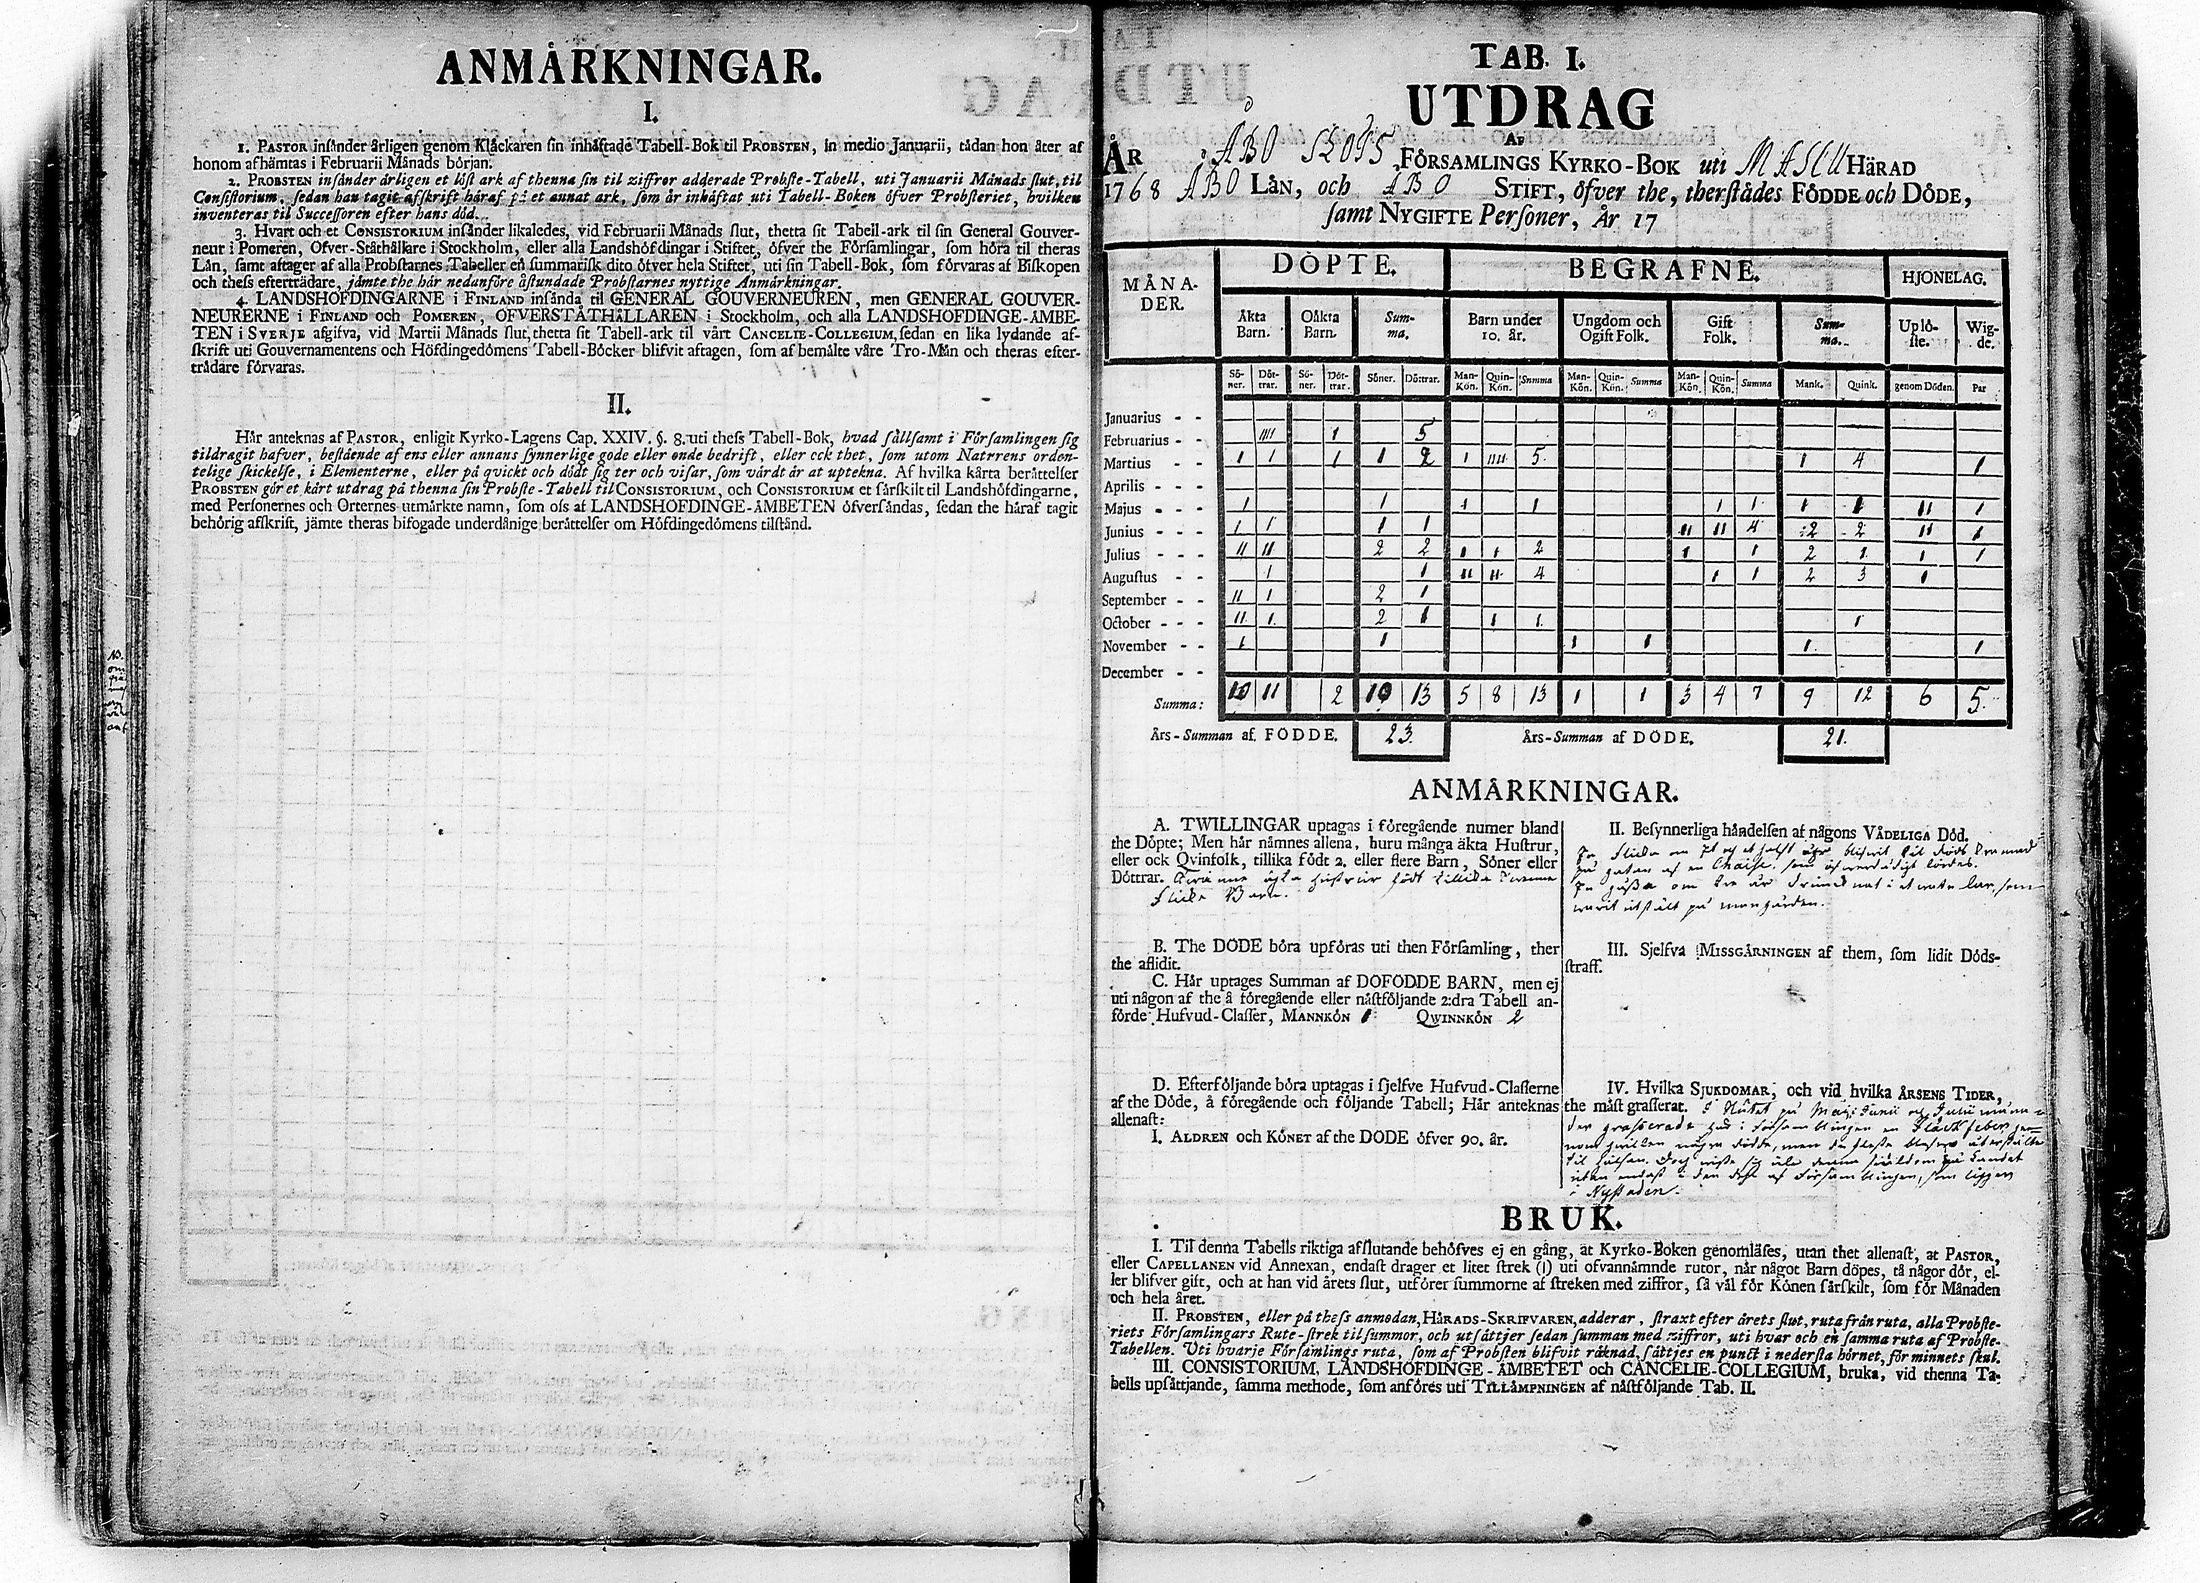 ANMÅRKNINGAR.
I.
1. PASTOR insånder årligen genom Klåckaren sin inhåftade Tabell-Bok til PROBSTEN, in medio Januarii, tådan hon åter af
honom afhämtas i Februarii Månads början.
2. PROBSTEN insånder årligen et löst ark af thenna sin til ziffror adderade Probste-Tabell, uti Januarii Månads slut, til
Consistorium, sedan han tagit afskrift håraf på et annat ark, som år inhåftat uti Tabell-Boken öfver Probsteriet, hvilken
inventeras til Successoren efter hans död.
3. Hvart och et CONSISTORIUM insånder likaledes, vid Februarii Månads slut, thetta sit Tabell-ark til sin General Gouver-
neur i Pomeren, Ofver-Ståthållare i Stockholm, eller alla Landshöfdingar i Stiftet, öfver the Församlingar, som höra til theras
Lån, samt aftager af alla Probstarnes Tabeller en summarisk dito öfver hela Stiftet, uti sin Tabell-Bok, som förvaras af Biskopen
och thess efterträdare, jämte the hår nedanföre åstundade Probstarnes nyttige Anmärkningar.
4. LANDSHÖFDINGARNE i FINLAND insånda til GENERAL GOUVERNEUREN, men GENERAL GOUVER-
NEURERNE i FINLAND och POMEREN, OFVERSTÅTHÅLLAREN i Stockholm, och alla LANDSHÖFDINGE-ÅMBE-
TEN i SVERJE afgifva, vid Martii Månads slut, thetta sit Tabell-ark til vårt CANCELIE-COLLEGIUM, sedan en lika lydande af-
skrift uti Gouvernamentens och Höfdingedömens Tabell-Böcker blifvit aftagen, som af bemålte våre Tro-Mån och theras efter-
trådare förvaras.
II.
Hår anteknas af PASTOR, enligit Kyrko-Lagens Cap. XXIV. §. 8. uti thess Tabell-Bok, hvad sållsamt i Församlingen sig
tildragit hafver, bestående af ens eller annans synnerlige gode eller onde bedrift, eller ock thet, som utom Naturens orden-
telige skickelse, i Elementerne, eller på qvickt och dödt sig ter och visar, som vårdt år at uptekna. Af hvilka kårta beråttelser
PROBSTEN gör et kårt utdrag på thenna sin Probste-Tabell til CONSISTORIUM, och CONSISTORIUM et sårskilt til Landshöfdingarne,
med Personernes och Orternes utmårkte namn, som oss af LANDSHÖFDINGE-ÅMBETEN öfversåndas, sedan the håraf tagit
behörig afskrift, jämte theras bifogade underdånige beråttelser om Höfdingedömens tilstånd.
TAB. I.
UTDRAG
AF
ÅR ÅBO SLOTS FÖRSAMLINGS KYRKO-BOK uti MASCU HÄRAD
1768 ÅBO LÅN, och ÅBO STIFT, öfver the, therstådes FÖDDE och DÖDE,
samt NYGIFTE Personer, År 17
MÅNA-DER. DÖPTE. BEGRAFNE. HJONELAG.
Åkta Barn. Oåkta Barn. Summa. Barn under 10. år. Ungdom och Ogift Folk. Gift Folk. Summa. Uplöste. Wigde.
Söner. Döttrar. Söner. Döttrar. Söner. Döttrar. Man-Kön. Quin-Kön. Summa Man-Kön. Quin-Kön. Summa Man-Kön. Quin-Kön. Summa Mank. Quink. genom Döden. Par
Januarius - -
Februarius - - IIII 1 5
Martius - - 1 1 1 1 2 1 IIII 5 1 4 1
Aprilis - - -
Majus - - - 1 1 1 1 1 1 1 1 II 1
Junius - - - 1 1 1 1 II II 4 2 2 II 1
Julius - - - II II 2 2 1 1 2 1 1 2 1 1 1
Augustus - - 1 1 II II 4 1 1 2 3 1
September - - II 1 2 1
October - - - II 1 2 1 1 1 1
November - - 1 1 1 1 1 1
December - -
Summa: 10 11 2 10 13 5 8 13 1 1 3 4 7 9 12 6 5
Års-Summan af FÖDDE. 23. Års-Summan af DÖDE. 21.
ANMÅRKNINGAR.
A. TWILLINGAR uptagas i föregående numer bland
the Döpte; Men hår nåmnes allena, huru många äkta Hustrur,
eller ock Qvinfolk, tillika födt 2. eller flere Barn, Söner eller
Döttrar. Twänne äkta Hustrur födt tillika Twenne
flicke Barn.
B. The DÖDE böra upföras uti then Församling, ther
the aflidit.
C. Hår uptages Summan af DÖFÖDDE BARN, men ej
uti någon af the å föregående eller nåstföljande 2:dra Tabell an-
förde Hufvud-Classer, MANNKÖN 1 QWINNKÖN 2
D. Efterföljande böra uptagas i sjelfve Hufvud-Classerne
af the Döde, å föregående och följande Tabell; Hår anteknas
allenast:
I. ALDREN och KÖNET af the DÖDE öfver 90. år.
II. Besynnerliga håndelsen af någons VÅDELIGA Död.
En flicka om et halft åhr blifvit
på gatan af en Chaise, som
En om tre år drunknat i et som
warit utstält på mangården.
III. Sjelfva MISSGÅRNINGEN af them, som lidit Döds-
straff.
IV. Hvilka SJUKDOMAR, och vid hvilka ÅRSENS TIDER,
the måst grasserat. I slutet på Maji Junii och Julii månader
grasserade här i församblingen en Fläckfeber, ge-
nom hvilken några dödde, men de fleste blefwo återstälte
til hälsan. Dock wiste sig icke denna siukdom på Landet
utan endast i den dehl af Församblingen, som ligger
i Nystaden.
BRUK.
I. Til denna Tabells riktiga afslutande behöfves ej en gång, at Kyrko-Boken genomläses, utan thet allenast, at PASTOR,
eller CAPELLANEN vid Annexan, endast drager et litet strek (1) uti ofvannåmnde rutor, når något Barn döpes, tå någor dör, el-
ler blifver gift, och at han vid årets slut, utförer summorne af streken med ziffror, så vål för Könen sårskilt, som för Månaden
och hela året.
II. PROBSTEN, eller på thess anmodan, HÅRADS-SKRIFVAREN, adderar, straxt efter årets slut, ruta från ruta, alla Probste-
riets Församlingars Rute-strek til summor, och utsåttjer sedan summan med ziffror, uti hvar och en samma ruta af Probste-
Tabellen. Uti hvarje Församlings ruta, som af Probsten blifvit råknad, såttjes en punct i nedersta hörnet, för minnets skul.
III. CONSISTORIUM, LANDSHÖFDINGE-ÅMBETET och CANCELIE-COLLEGIUM, bruka, vid thenna Ta-
bells upsåttjande, samma methode, som anföres uti TILLÅMPNINGEN af nåstföljande Tab. II.